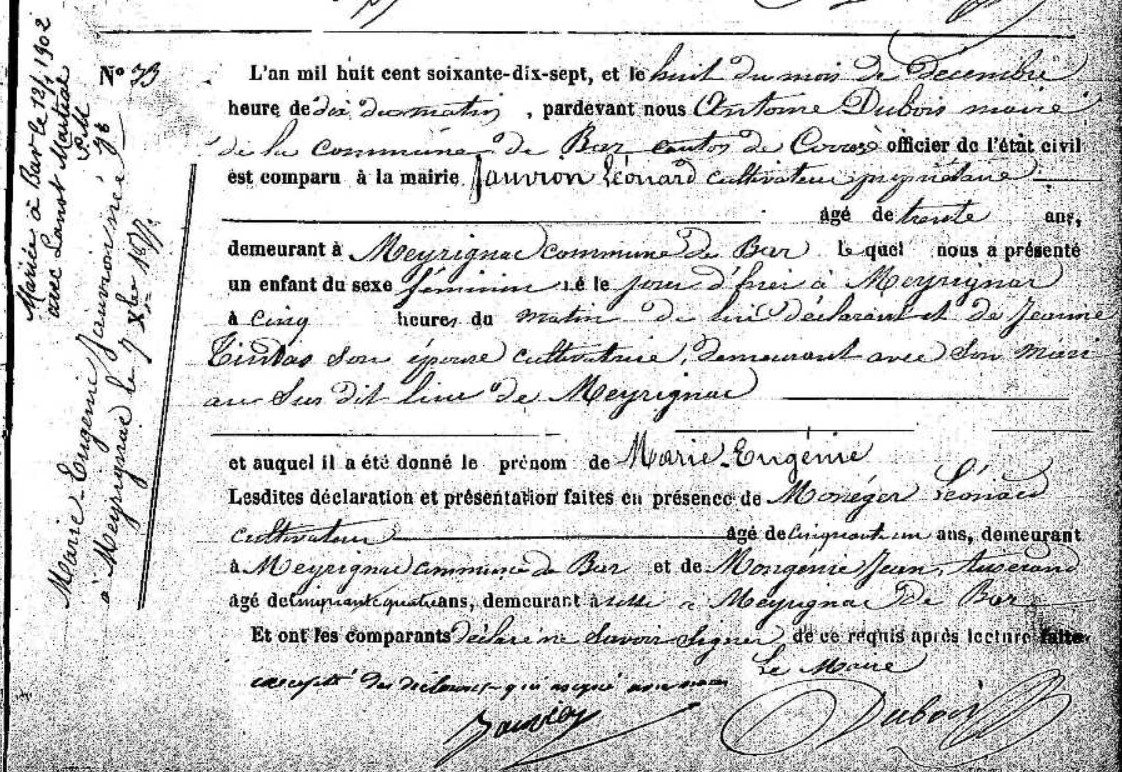 Mariée à Bar le 12/1 1902
avec Lanot Martial
Marie-Eugenie Jauvrion née
à Meyrignac le 7 Xbre 1877.
N° 33
L'an mil huit cent soixante-dix-sept, et le huit du mois de Décembre
heure de dix du matin, pardevant nous Antoine Dubois maire
de la commune de Bar canton de Corrèze officier de l'état civil
est comparu à la mairie Jauvrion Léonard cultivateur propriétaire
âgé de trente ans,
demeurant à Meyrignac commune de Bar lequel nous a présenté
un enfant du sexe féminin né le jour d'hier à Meyrignac
à cinq heures du matin de lui déclarant et de Jeanne
Tintas son épouse cultivatrice, demeurant avec son mari
au sus dit lieu de Meyrignac
et auquel il a été donné le prénom de Marie-Eugénie
Lesdites déclaration et présentation faites en présence de Monéger Léonard
cultivateur âgé de cinquante un ans, demeurant
à Meyrignac commune de Bar et de Jean, tisserand
âgé de cinquante quatre ans, demeurant à Meyrignac de Bar
Et ont les comparants déclaré ne savoir signer de ce requis après lecture faite
Le Maire
excepté du déclarant qui a signé avec nous
Dubois